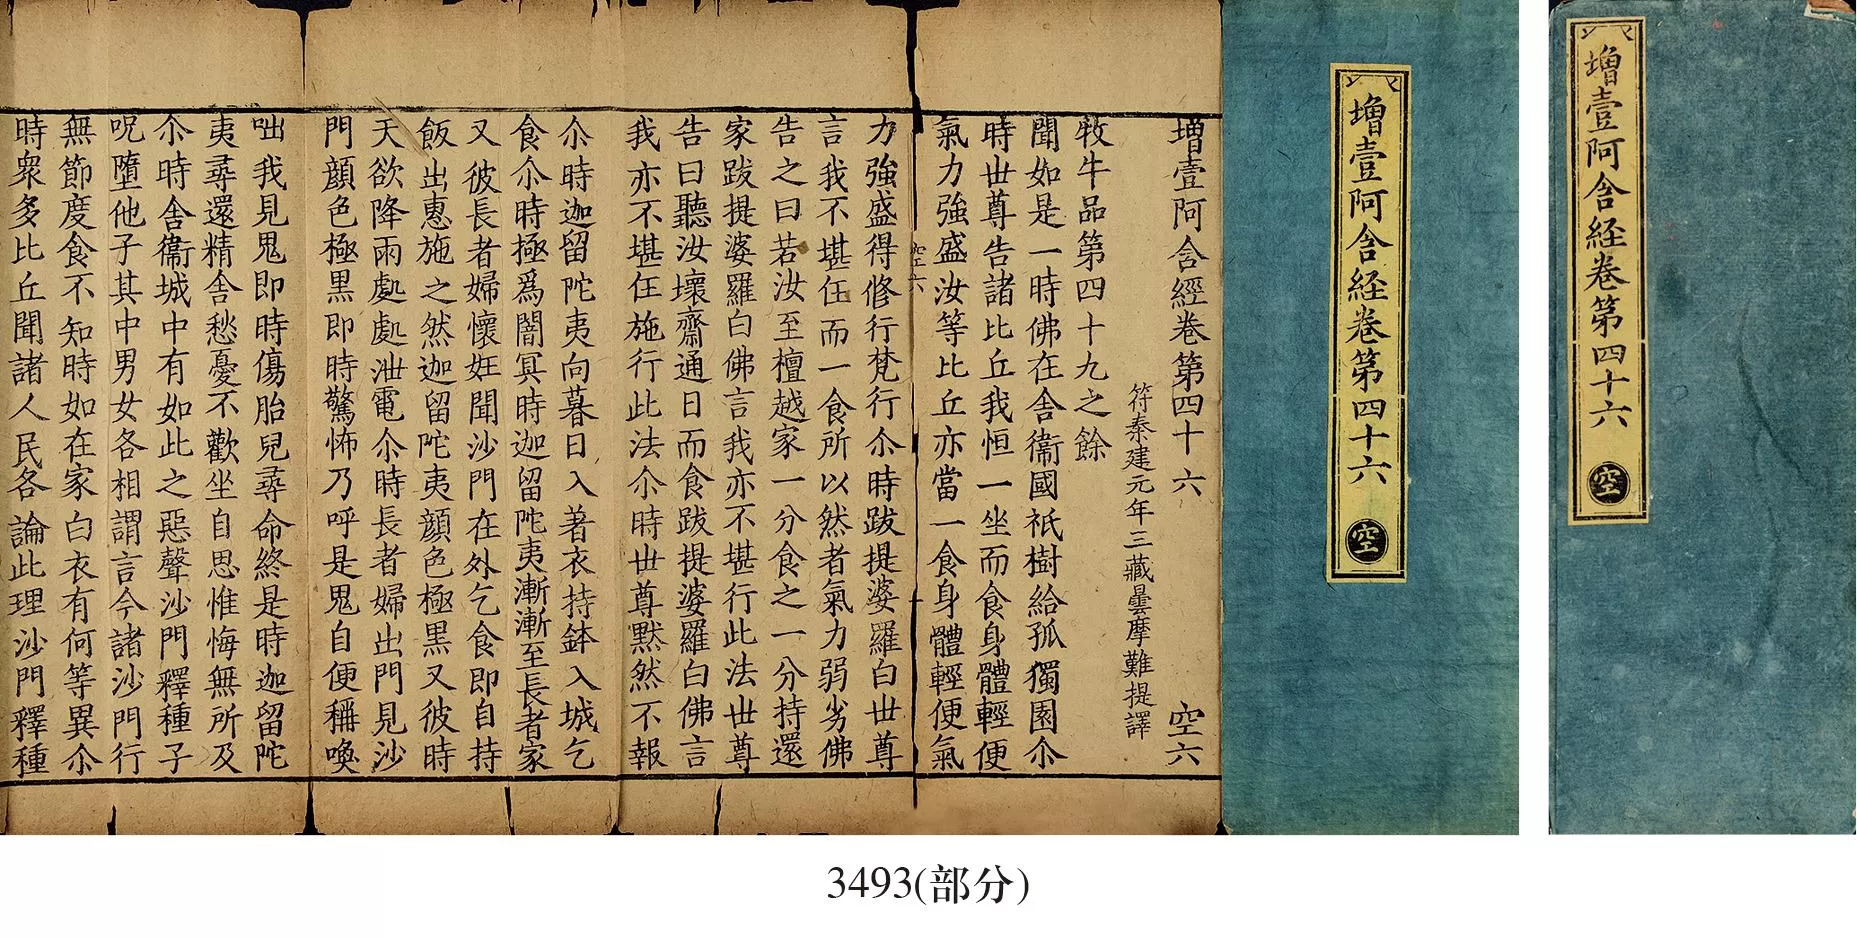 增壹阿含経卷第四十六
空
增壹阿含経卷第四十六
空
增壹阿含經卷第四十六 空六
符秦建元年三藏曇摩難提譯
牧牛品第四十九之餘
聞如是一時佛在舎衞國祇樹給孤獨園尒
時世尊告諸比丘我恒一坐而食身體輕便
氣力強盛汝等比丘亦當一食身體輕便氣
力強盛得修行梵行尒時跋提婆羅白世尊
空六
言我不堪任而一食所以然者氣力弱劣佛
告之曰若汝至檀越家一分食之一分持還
家跋提婆羅白佛言我亦不堪行此法世尊
告曰聽汝壞齋通日而食跋提婆羅白佛言
我亦不堪任施行此法尒時世尊黙然不報
尒時迦留陀夷向暮日入著衣持鉢入城乞
食尒時極爲闇冥時迦留陀夷漸漸至長者家
又彼長者婦懷妊聞沙門在外乞食即自持
飯出惠施之然迦留陀夷顔色極黒又彼時
天欲降雨處處泄電尒時長者婦出門見沙
門顔色極黒即時驚怖乃呼是鬼自便稱喚
咄我見鬼即時傷胎兒尋命終是時迦留陀
夷尋還精舎愁憂不歡坐自思惟悔無所及
尒時舎衞城中有如此之惡聲沙門釋種子
呪墮他子其中男女各相謂言今諸沙門行
無節度食不知時如在家白衣有何等異尒
時衆多比丘聞諸人民各論此理沙門釋種
3493(部分)